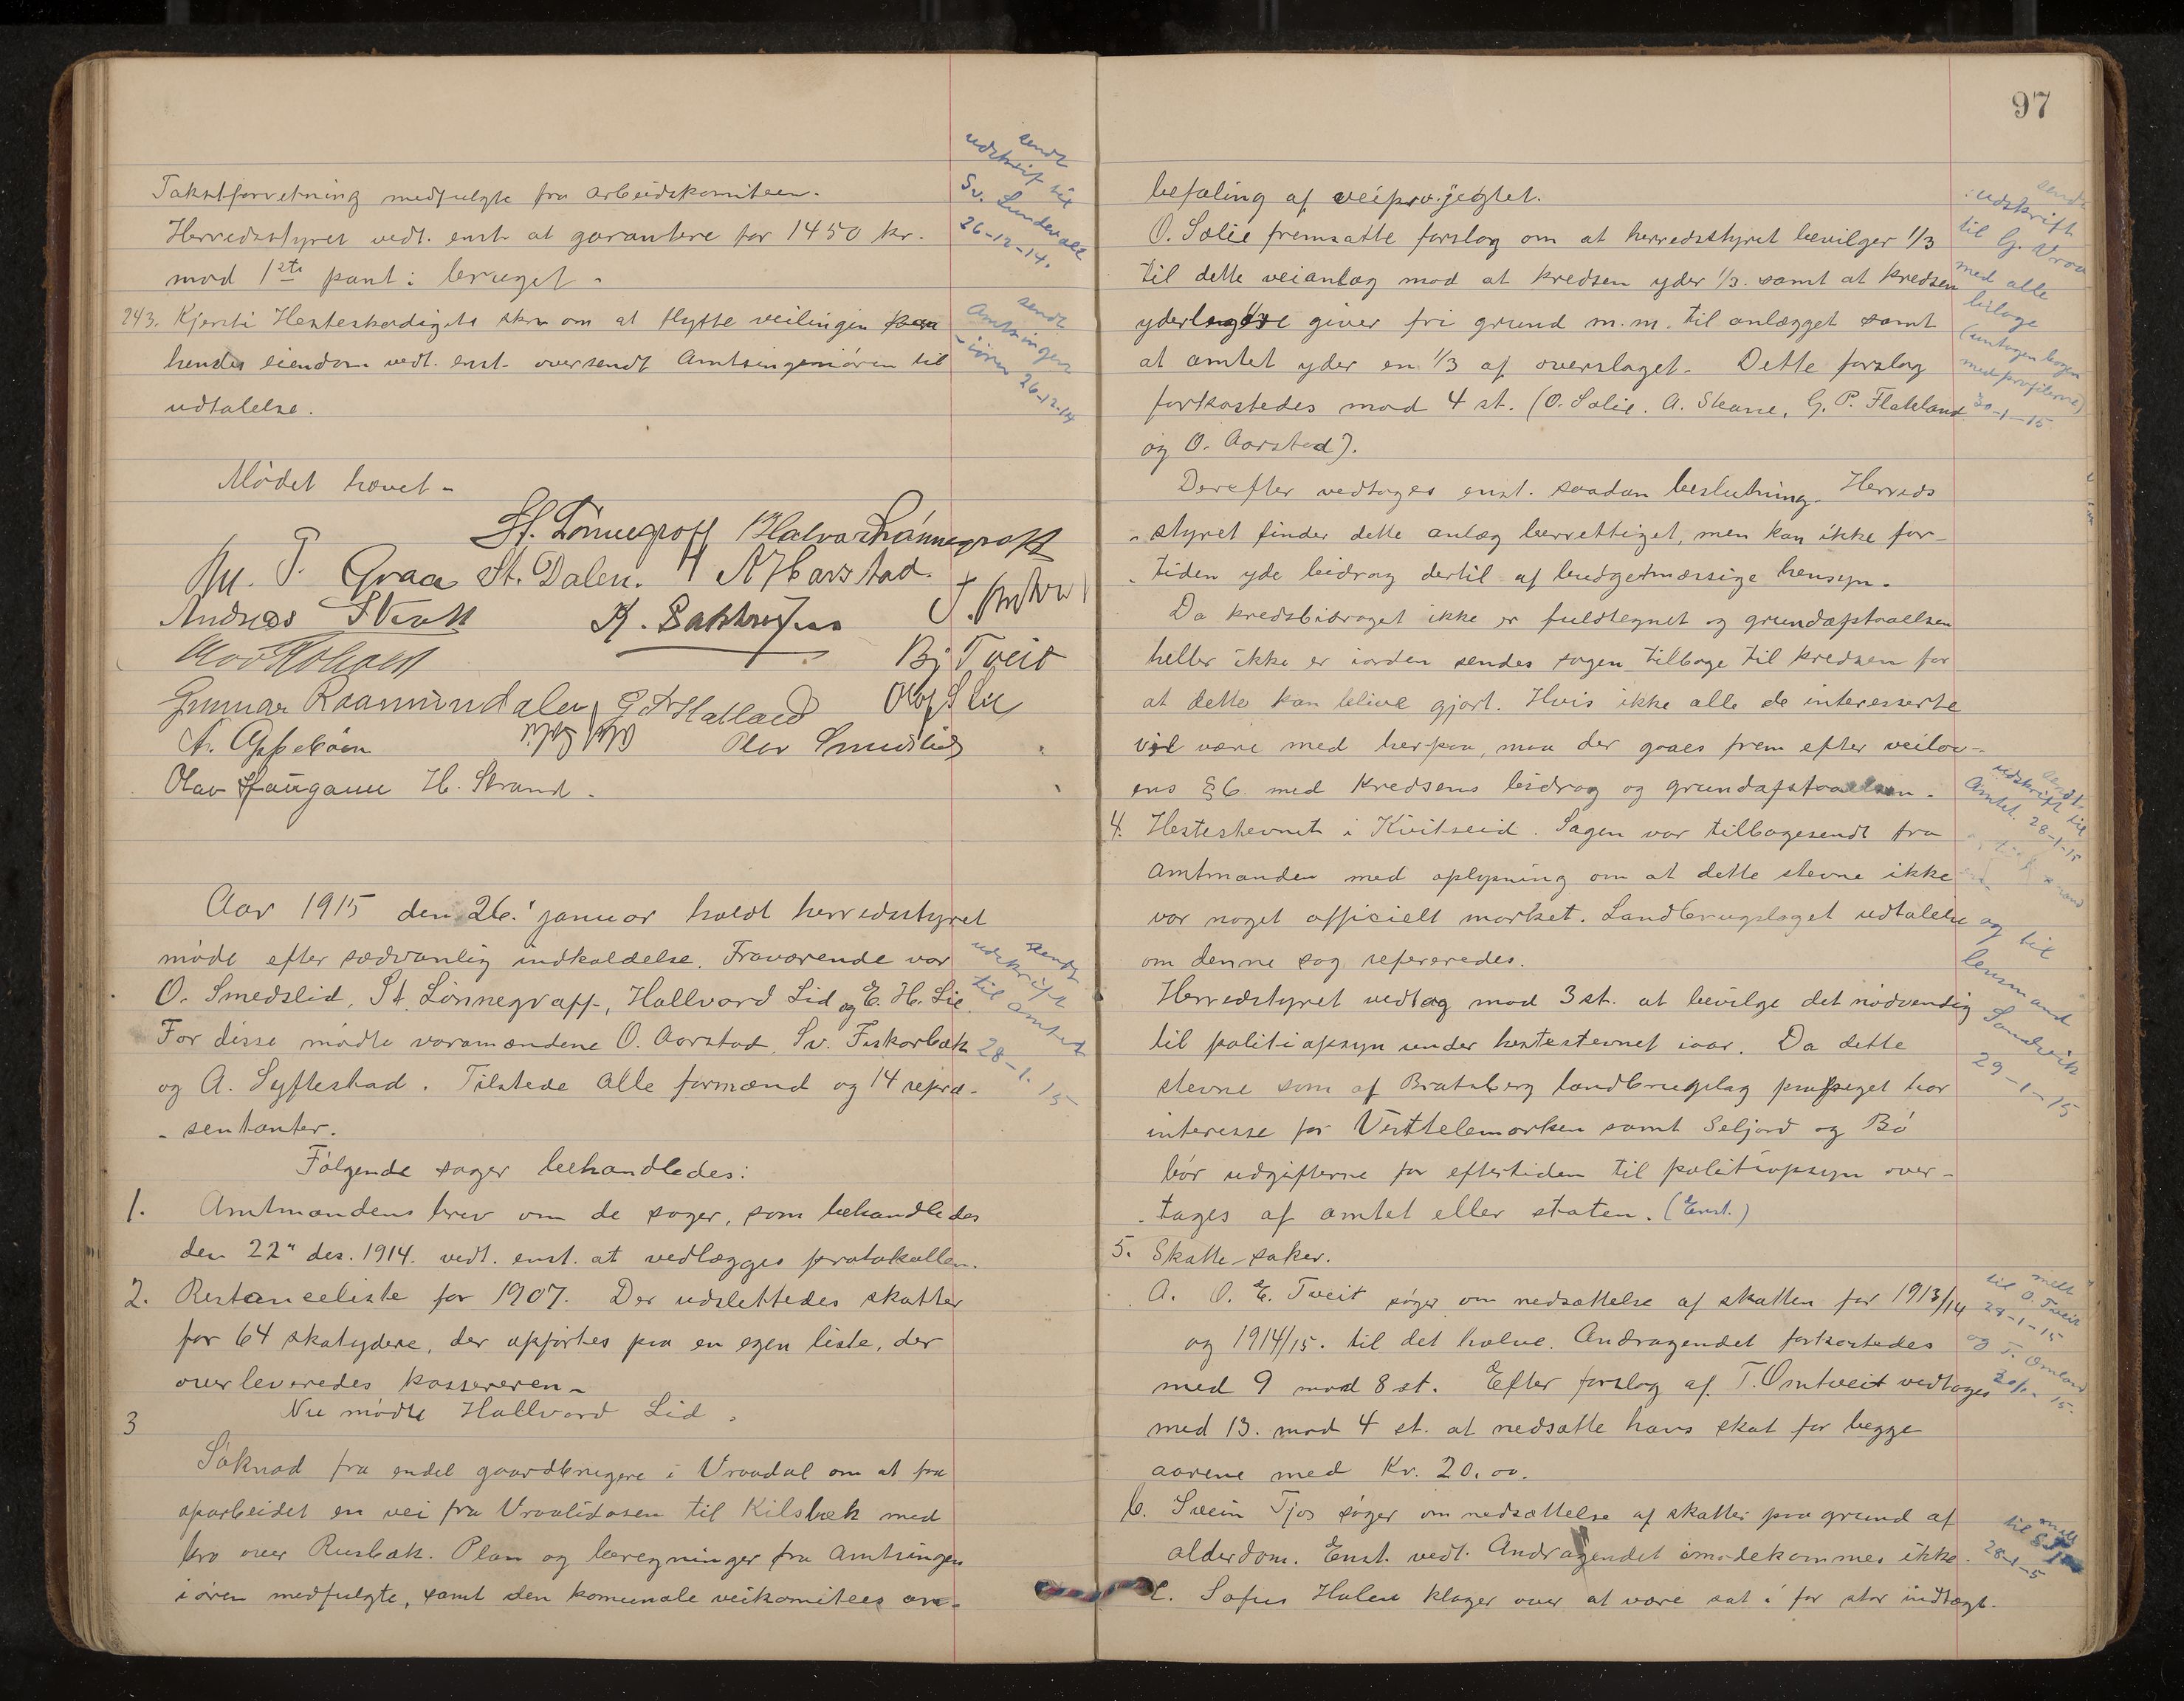 Takstforretning medfulgte fra arbeidskomiteen.
Herredsstyret vedt. enst. at garantere for 1450 kr.
mod 1ste pant i bruget.
243. Kjersti Hesteskodigets skr. om at flytte veilingen paa
hendes eiendom vedt. enst. oversendt Amtsingeniøren til
udtalelse.
sendt
udskrift til
Sv. Lundevall
26-12-14.
sendt
Amtsingen
-iøren 26-12-14
Mødet hævet.
St. Lönnegraff Halvor Lönnegraff
P. Graa St. Dalen. A Harstad.
Andreas
Bj Tveit
Gunnar Raamundalen Olaf S Lie
Olav Smedslid
Olav Haugann H. Strand.
Aar 1915 den 26. januar holdt herredsstyret
møde efter sædvanlig indkaldelse. Fraværende var
O. Smedslid, St. Lönnegraff, Hallvard Lid og E. H. Lie.
For disse mødte varamændene O. Aarstad, Sv. Fiskarbæk
og A. Syftestad. Tilstede alle formænd og 14 repræ-
sentanter.
sendt
udskrift
til amtet
28-1. 15.
Følgende sager behandledes:
1. Amtmandens brev om de sager, som behandledes
den 22" des. 1914. vedt. enst. at vedlægges protokollen.
2. Restanceliste for 1907. Der udslettedes skatter
for 64 skatydere, der opførtes paa en egen liste, der
overleveredes kassereren.
Nu mødte Hallvard Lid.
3
Søknad fra endel gaardbrugere i Vraadal om at faa
oparbeidet en vei fra Vraaliosen til Kilsbæk med
bro over Rusbæk. Plan og beregninger fra Amtsingen
iøren medfulgte, samt den komunale veikomitees an-
97
befaling af veiprojegtet.
O. Solie fremsatte forslag om at herredsstyret bevilger 1/3
til dette veianlæg mod at kredsen yder 1/3. samt at kredsen
yderligere giver fri grund m.m. til anlægget samt
at amtet yder en 1/3 af overslaget. Dette forslag
forkastedes mod 4 st. (O. Solie. A. Skare, G. P. Flateland
og O. Aarstad).
sendt
udskrift
til G. Vraa
med alle
bilage
(untagen bogen
med profilerne)
30-1-15
Derefter vedtoges enst. saadan beslutning. Herreds
-styret finder dette anlæg berettiget, men kan ikke for-
tiden yde bidrag dertil af budgetmæssige hensyn.
Da kredsbidraget ikke er fuldtegnet og grundafstaaelsen
heller ikke er iorden sendes sagen tilbage til kredsen for
at dette kan blive gjort. Hvis ikke alle de interesserte
vil være med herpaa, maa der gaaes frem efter veilov-
ens §6 med kredsens bidrag og grundafstaaelsen.
4. Hestestevnet i Kvitseid. Sagen var tilbagesendt fra
amtmanden med oplysning om at dette stevne ikke
var noget officielt marked. Landbrugslaget udtalelse
om denne sag refereredes.
sendt
udskrift til
Amtet. 28-1-15
og til
lensmand
Sandvik
29-1-15
Herredstyret vedtog mod 3 st. at bevilge det nødvendig
til politiopsyn under hestestevnet iaar. Da dette
stevne som af Bratsberg landbruglag har
interesse for Vesttelemarken samt Seljord og Bø
bør udgifterne for eftertiden til politiopsyn over-
tages af amtet eller staten. (Enst.)
5. Skatte-saker.
A. O. E. Tveit søger om nedsættelse af skatten for 1913/14
og 1914/15. til det halve. Andragendet forkastedes
med 9 mod 8 st. Efter forslag af T. Omtveit vedtoges
med 13. mod 4 st. at nedsætte hans skat for begge
aarene med Kr. 20.00.
melt
til O. Tveit
28-1-15
b. Svein Tjos søger om nedsættelse af skatter paa grund af
alderdom. Enst. vedt. Andragendet imødekommes ikke.
28-1-5
c. Sofus Halen klager over at være sat i for stor indtægt.